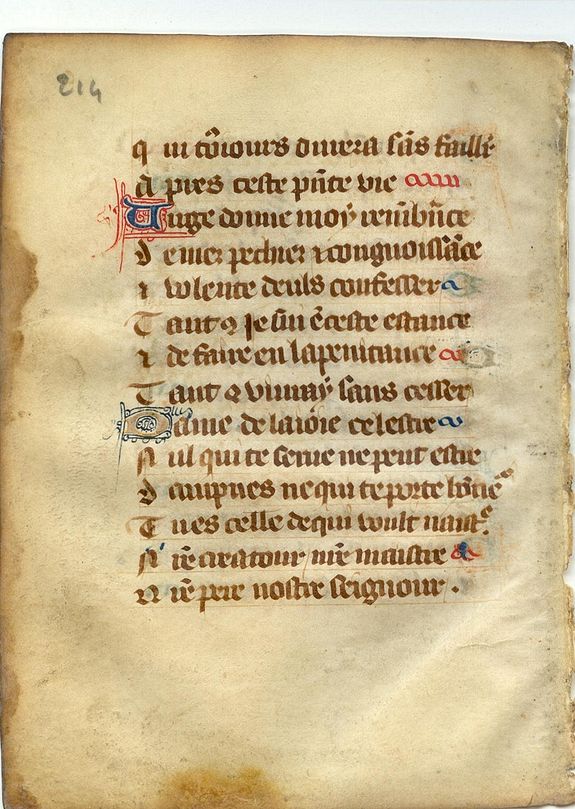 214
Qui to͂iours durera sa͂s faille
Apres ceste pn͂te vie
Vuge donne moy reme͂bra͂ce
De mes pechiez ⁊ congnoissa͂ce
⁊ volente deuls confesser
Tant q̃ je sui e͂ ceste estance
⁊ de faire en la penitance
Tant q̃ viuray sans cesser
Dame de la ioie celestre
Nul qui te serue ne peut estre
Dampnes ne qui te porte ho͂ne
Tu es celle de qui voult naist
Nr̃e creatour nr̃e maistre
Nr̃e pere nostre seignour .